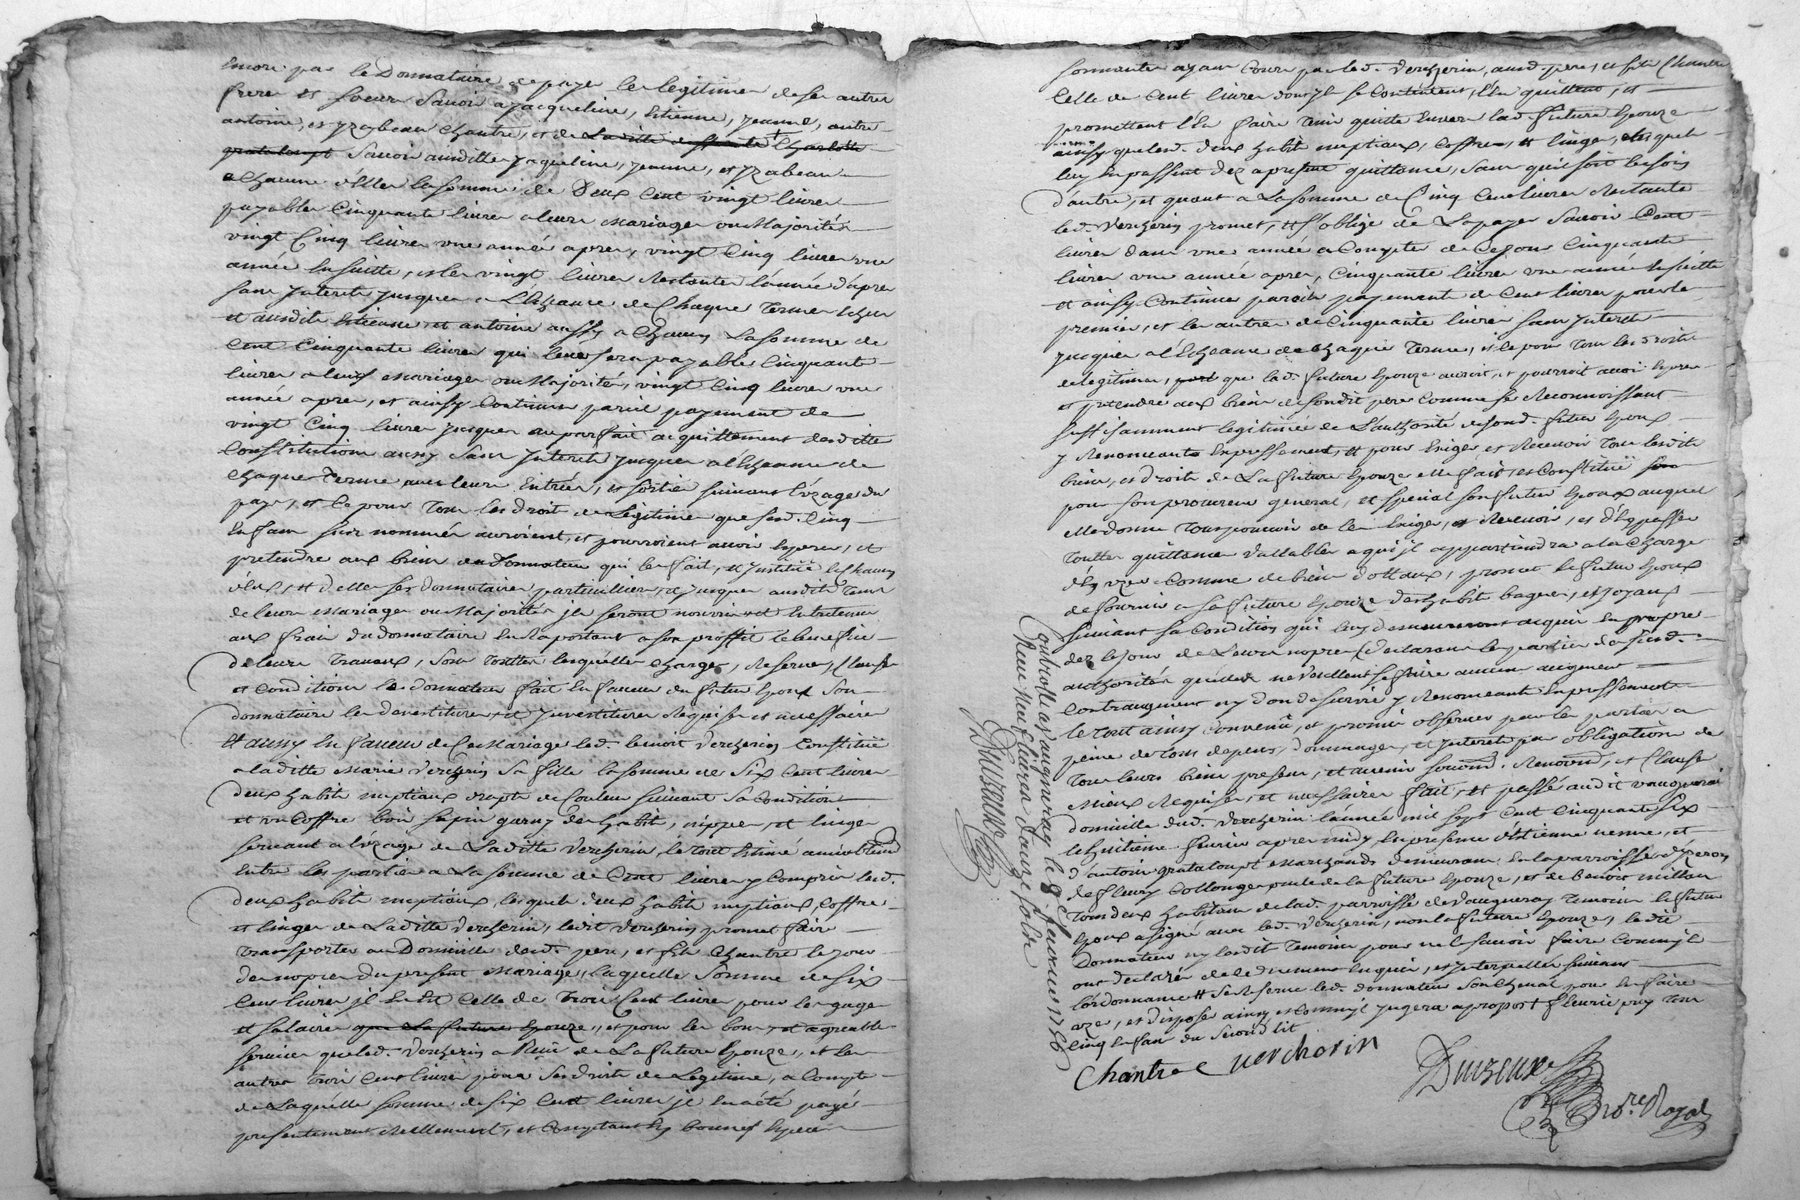 encore par le Donnataire de payer les legitimes de ses autres
freres et soeurs Savoir a jacqueline, Estienne, jeanne, autre
antoine, et yzabeau Chantre, et de Laditte Charlotte
Savoir auxdittes jaqueline, jeanne, et yzabeau
a Chacune d'Elles la somme de Deux Cent vingt livres
payables Cinquante livres a leurs Mariages ou Majorités
vingt Cinq livres une année apres, vingt Cinq livres une
année Ensuitte, et les vingt livres Restantes l'année d'apres
sans Interets jusques a L'Echeance de Chaque Terme Echeu
et auxdits Estienne et antoine aussy a Chacun La somme de
Cent Cinquante livres qui leur sera payable Cinquante
livres a leurs Mariages ou Majorités, vingt Cinq livres une
année apres, et ainsy Continuer pareil payement de
vingt Cinq livres jusques au parfait acquittement desdittes
Constitutions aussy sans Interets jusques a l'Echeance de
Chaque Terme avec leurs Entrées, et sorties suivant l'uzage du
pays, et ce pour Tous les droits de Legitime que sesd. Cinq
Enfans sus nommés auroient, et pourroient avoir Esperer, et
pretendre aux biens du Donnateur qui les fait, et Institüe Chacuns
d'Eux, et d'Elles ses donnataires particulliers, et jusques auxdits Tems
de leurs Mariages ou Majorités ils seront nourris et Entretenus
aux frais du donnataire En Raportant a son proffit le benefice
de leurs Travaux, sous Touttes lesquelles charges, Reserves, Clauses
et conditions le donnateur fait En faveur du futur Epoux son
donnataire les devestitures et Investitures Requises et necessaires
Et aussy En faveur de Ce Mariage led. benoit Vercherin Constitüe
a laditte Marie Vercherin sa fille la somme de Six Cent livres
deux habits nuptiaux drapt de Couleur suivant sa condition
et un Coffre bois sapin garny des habits, nippes, et linges
servant a l'uzage de Laditte Vercherin, le tout Estimé amiablement
Entre les parties a La somme de Cent livres y Compris lesd.
deux habits nuptiaux, lesquels deux habits nuptiaux, coffre
et linges de Laditte Vercherin, ledit Vercherin promet faire
transporter au Domicille desd. pere, et fils Chantre le jour
des nopces du present Mariage, laquelle Somme de six
Cent livres il Est Celle de Trois Cent livres pour les gages
et salaires que La future Epouze, et pour les bons et agreables
services que led. Vercherin a Reçu de La future Epouze, et les
autres Trois Cent livres pour ses droits de Legitime, a Compte
de Laquelle somme de six Cent livres il En a été payé
presentement Reellement, et Comptant En bonnes Especes
sonnantes ayant Cours par led. Vercherin, auxd. pere, et fils Chantre
Celle de Cent livres dont ils se Contentent, l'En quittent, et
promettent l'En faire Tenir quitte Envers lad. future Epouze
ainsy que lesd. deux habits nuptiaux, Coffre, et linges, desquels
ils En passent dez a present quittance, sans qu'il soit besoin
d'autre, et quant a La somme de Cinq Cent livres Restante
led. Vercherin promet, et s'oblige de La payer Savoir Cent
livres dans une année a Compter de Ce jour Cinquante
livres une année apres, Cinquante livres une année Ensuitte
et ainsy Continuer pareils payements de Cent livres pour le
premier, et les autres de Cinquante livres sans Interets
jusques a l'Echeance de Chaque Terme, et ce pour Tous les droits
de legitime, que lad. future Epouze auroit, et pourroit avoir Esperer
et pretendre aux biens de sondit pere Comme se Reconnoissant
suffisamment legitimée de L'authorité de sond. futur Epoux
y Renonceant Expressement, et pour Exiger et Recevoir Tous lesdits
biens, et droits de La future Epouze elle fait, et Constitüe
pour son procureur general et special son futur Epoux auquel
elle donne Tous pouvoirs de les Exiger, et Recevoir, et d'En passer
Touttes quittances vallables a qui il appartiendra a la Charge
d'En uzer Comme de biens dottaux, promet le futur Epoux
de fournir a sa future Epouze des habits bagues, et joyaux
suivant sa Condition qui luy demeureront acquis En propre
dez le jour de Leurs nopces Declarant les parties de susd.
authorités qu'elles ne veullent se faire aucun augment
Contraugment ny don de survie y Renonceant Expressement
le tout ainsy Convenû, et promis observer par les parties a
peine de tous depens, dommages, et Interets par obligation de
Tous leurs biens presens, et avenir soumis. Renonn. et Clauses
Mieux Requises, et necessaires fait, et passé audit vaugneray
domicille dud. Vercherin l'année mil sept Cent Cinquante six
le huitieme fevrier apres midy En presence d'Estienne nesme, et
d'antoine grataloupt Marchands demeurans En la parroisse d'yzeron
de fleury Collonge parte de la future Epouze, et de benoit millan
Tous deux habitans de lad. parroisse de Vaugneray Temoins le futur
Epoux a signé avec led. Vercherin, non la future Epouze, ledit
Donnateur ny lesdits Temoins pour ne le savoir faire Comme ils
ont declarés de ce duement Enquis, et Interpellés suivant
L'ordonnance et se Reserve led. donnateur son cheval pour En faire
uzer, et disposer ainsy et Comme il jugera a propos
Cinq Enfans du second lit
Chantre Vercherin
Duizeux
Nore. Royal
Controllé a vaugneray le 8 fevrier 1756
Reçu neuf livres douze sols
Duizeux